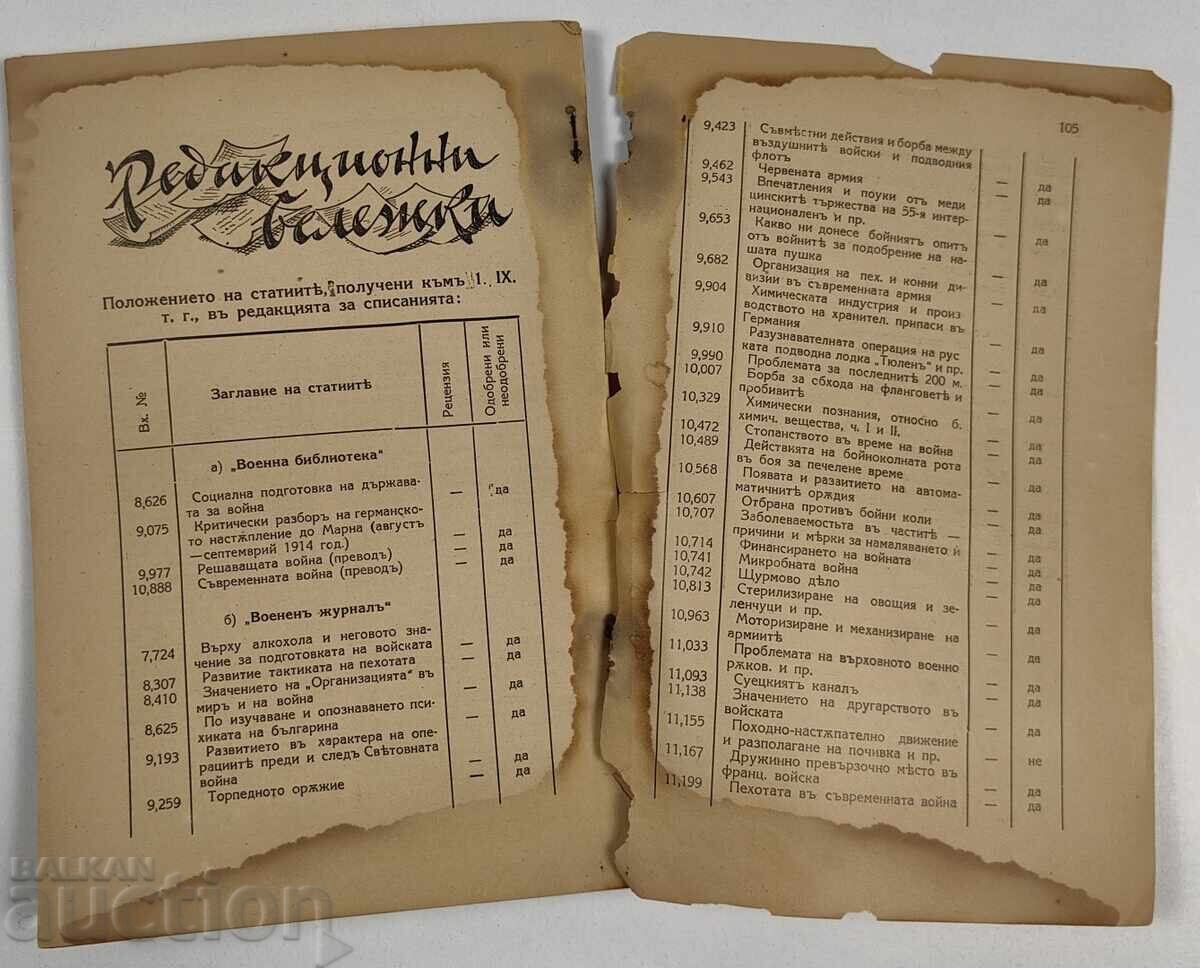 Редакционни
бележки
Положението на статиитѣ, получени къмъ 1. IX.
т. г., въ редакцията за списанията:
Вх. №
Заглавие на статиитѣ
Рецензия
Одобрени или
неодобрени
а) „Военна библиотека“
8,626 Социална подготовка на държава-
та за война — да
9,075 Критически разборъ на германско-
то настѫпление до Марна (августъ
—септемврий 1914 год.) — да
9,977 Решаващата война (преводъ) — да
10,888 Съвременната война (преводъ) — да
б) „Воененъ журналъ“
7,724 Върху алкохола и неговото зна-
чение за подготовката на войската — да
8,307 Развитие тактиката на пехотата — да
8,410 Значението на „Организацията“ въ
миръ и на война — да
8,625 По изучаване и опознаването пси-
хиката на българина — да
9,193 Развитието въ характера на опе-
рациитѣ преди и следъ Свѣтовната
война — да
9,259 Торпедното орѫжие — да
105
9,423 Съвмѣстни действия и борба между
въздушнитѣ войски и подводния
флотъ — да
9,462 Червената армия — да
9,543 Впечатления и поуки отъ меди
цинскитѣ тържества на 55-я интер-
националенъ и пр. — да
9,653 Какво ни донесе бойниятъ опитъ
отъ войнитѣ за подобрение на на-
шата пушка — да
9,682 Организация на пех. и конни ди-
визии въ съвременната армия — да
9,904 Химическата индустрия и произ
водството на хранител. припаси въ
Германия — да
9,910 Разузнавателната операция на рус
ката подводна лодка „Тюленъ“ и пр. — да
9,990 Проблемата за последнитѣ 200 м. — да
10,007 Борба за обхода на фланговетѣ и
пробивитѣ — да
10,329 Химически познания, относно б.
химич. вещества, ч. I и II. — да
10,472 Стопанството въ време на война — да
10,489 Действията на бойноколната рота
въ боя за печелене време — да
10,568 Появата и развитието на автома-
матичнитѣ орѫдия — да
10,607 Отбрана противъ бойни коли — да
10,707 Заболеваемостьта въ частитѣ —
причини и мѣрки за намаляването ѝ — да
10,714 Финансирането на войната — да
10,741 Микробната война — да
10,742 Щурмово дѣло — да
10,813 Стерилизиране на овощия и зе-
ленчуци и пр. — да
10,963 Моторизиране и механизиране на
армиитѣ — да
11,033 Проблемата на върховното военно
рѫков. и пр. — не
11,093 Суецкиятъ каналъ — да
11,138 Значението на другарството въ
войската — да
11,155 Походно-настѫпателно движение
и разполагане на почивка и пр. — не
11,167 Дружинно превързочно мѣсто въ
франц. войска — да
11,199 Пехотата въ съвременната война — да
BALKAN
auction